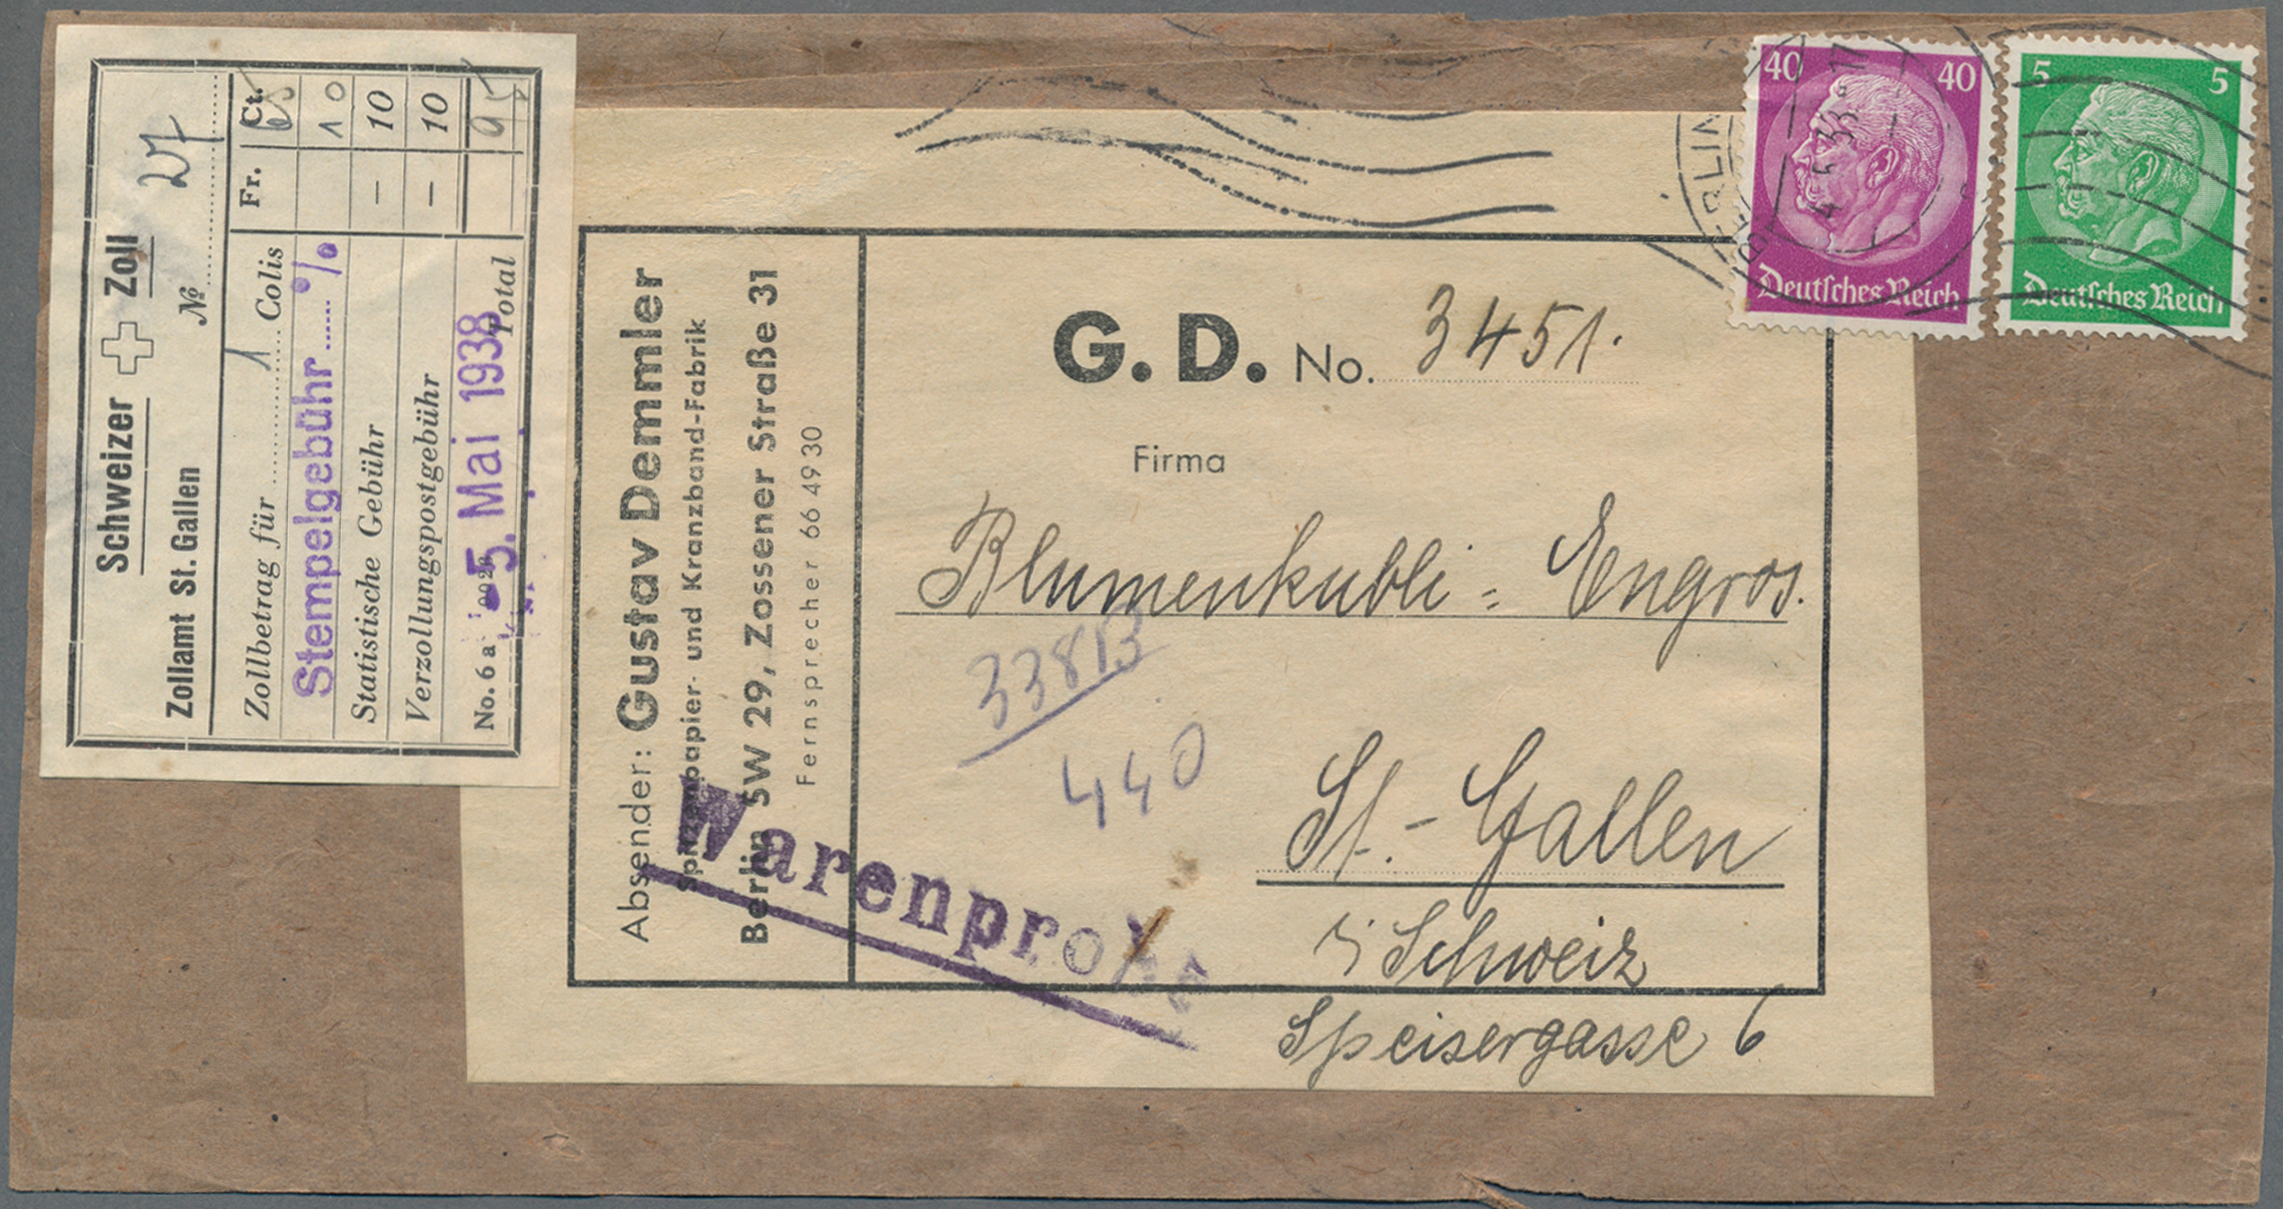 Schweizer Zoll
Zollamt St. Gallen № 27
Fr. Ct.
Zollbetrag für 1 Colis 65
Stempelgebühr % 10
Statistische Gebühr – 10
Verzollungspostgebühr – 10
No. 6 a
-5. Mai 1938
Total 95
Absender: Gustav Demmler
Spitzenpapier- und Kranzband-Fabrik
Berlin SW 29, Zossener Straße 31
Fernsprecher 66 49 30
G. D. No. 3451.
Firma
Blumenkubli = Engros.
33813
440
St.-Gallen
i/ Schweiz
Speisergasse 6
Warenprobe
BERLIN
4.5.38.-17
40 40
Deutsches Reich
5 5
Deutsches Reich